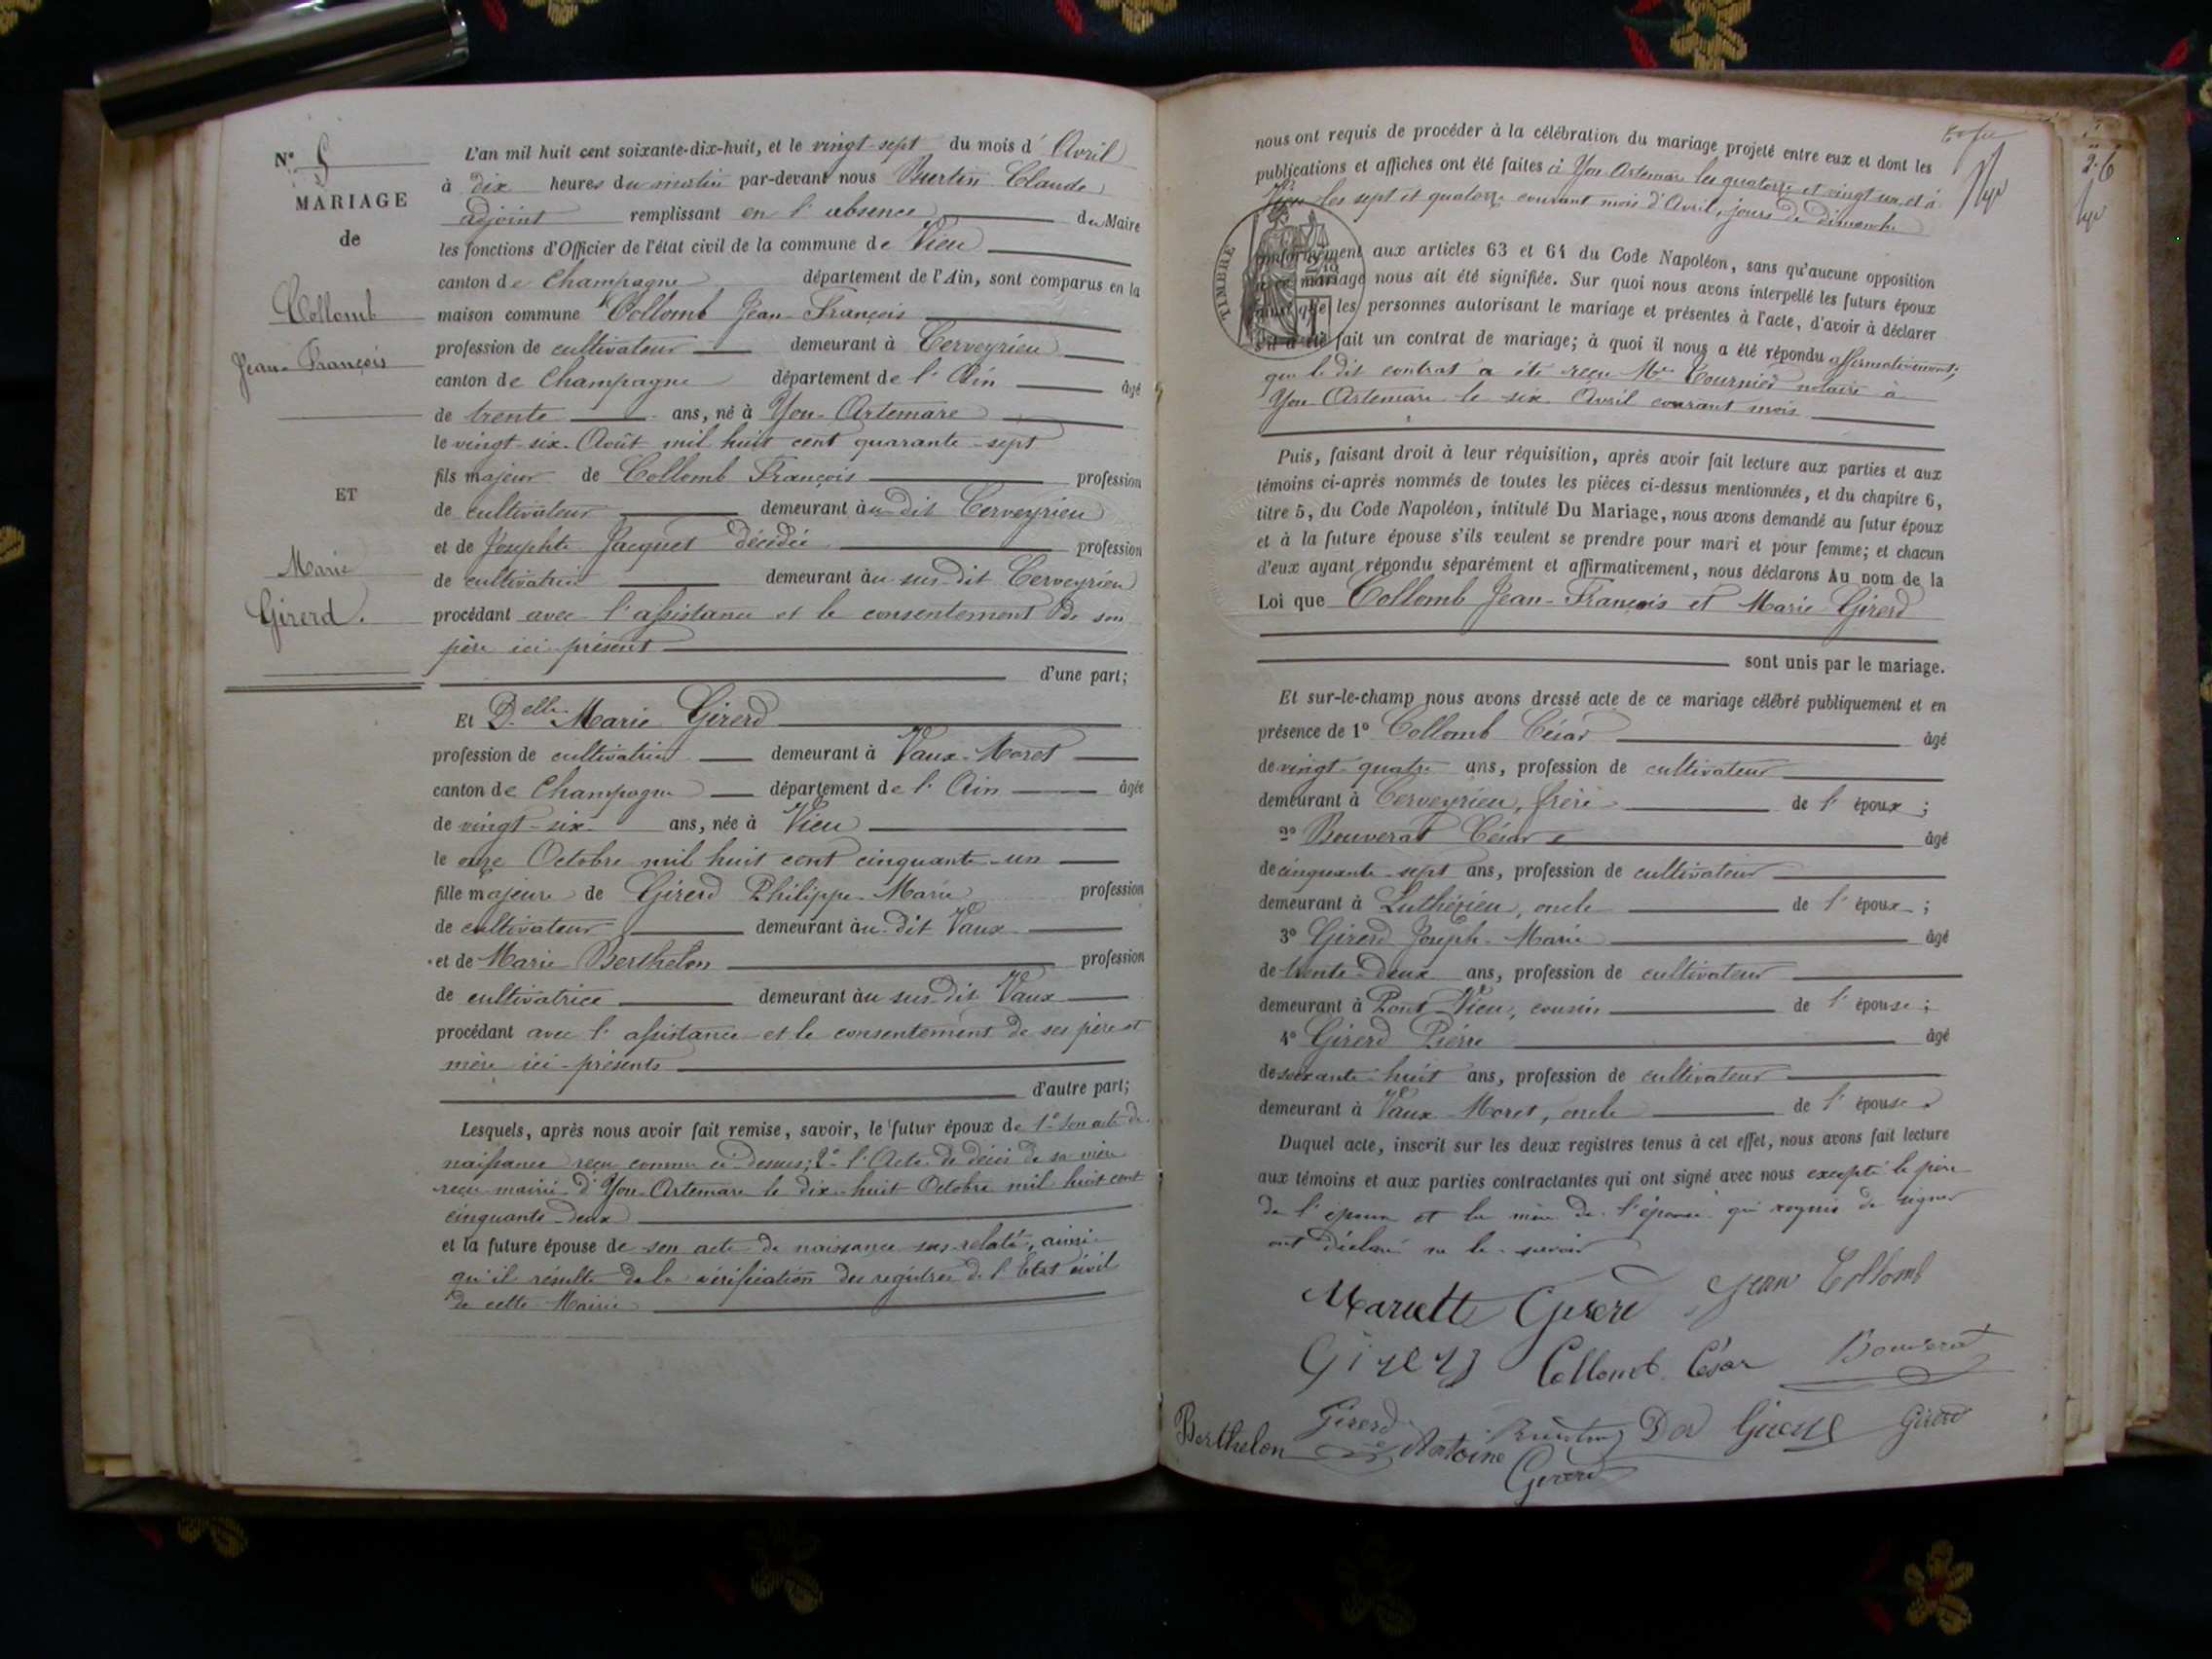 N° 5
MARIAGE
de
Collomb
Jean-François
ET
Marie
Girerd.
L'an mil huit cent soixante-dix-huit, et le vingt-sept du mois d' Avril
à dix heures du matin par-devant nous Burtin Claude
adjoint remplissant en l'absence du Maire
les fonctions d'Officier de l'état civil de la commune de Vieu
canton de Champagne département de l'Ain, sont comparus en la
maison commune Collomb Jean-François
profession de cultivateur demeurant à Cerveyrieu
canton de Champagne département de l'Ain âgé
de trente ans, né à Yon-Artemare
le vingt-six Août mil huit cent quarante-sept
fils majeur de Collomb François profession
de cultivateur demeurant au dit Cerveyrieu
et de Josephte Jacquet décédée profession
de cultivatrice demeurant au sus-dit Cerveyrieu
procédant avec l'assistance et le consentement de son
père ici présent
d'une part;
Et Delle Marie Girerd
profession de cultivatrice demeurant à Vaux-Moret
canton de Champagne département de l'Ain âgée
de vingt-six ans, née à Vieu
le onze Octobre mil huit cent cinquante-un
fille majeure de Girerd Philippe-Marie profession
de cultivateur demeurant au dit Vaux
et de Marie Berthelon profession
de cultivatrice demeurant au sus-dit Vaux
procédant avec l'assistance et le consentement de ses père et
mère ici-présents
d'autre part;
Lesquels, après nous avoir fait remise, savoir, le futur époux de 1° son acte de
naissance reçu comme ci-dessus; 2° l'Acte de décès de sa mère
reçu mairie d'Yon-Artemare le dix-huit Octobre mil huit cent
cinquante-deux
et la future épouse de son acte de naissance sus-relaté, ainsi
qu'il résulte de la vérification des registres de l'Etat civil
de cette Mairie
2.6
nous ont requis de procéder à la célébration du mariage projeté entre eux et dont les
publications et affiches ont été faites à Yon-Artemare les quatorze et vingt un, et à
Vieu les sept et quatorze courant mois d'Avril, jours de dimanche
TIMBRE
conformément aux articles 63 et 64 du Code Napoléon, sans qu'aucune opposition
à ce mariage nous ait été signifiée. Sur quoi nous avons interpellé les futurs époux
ainsi que les personnes autorisant le mariage et présentes à l'acte, d'avoir à déclarer
s'il a été fait un contrat de mariage; à quoi il nous a été répondu affirmativement;
que le dit contrat a été reçu Me Tournier notaire à
Yon Artemare le six Avril courant mois
Puis, faisant droit à leur réquisition, après avoir fait lecture aux parties et aux
témoins ci-après nommés de toutes les pièces ci-dessus mentionnées, et du chapitre 6,
titre 5, du Code Napoléon, intitulé Du Mariage, nous avons demandé au futur époux
et à la future épouse s'ils veulent se prendre pour mari et pour femme; et chacun
d'eux ayant répondu séparément et affirmativement, nous déclarons Au nom de la
Loi que Collomb Jean-François et Marie Girerd
sont unis par le mariage.
Et sur-le-champ nous avons dressé acte de ce mariage célébré publiquement et en
présence de 1° Collomb César âgé
de vingt-quatre ans, profession de cultivateur
demeurant à Cerveyrieu, frère de l'époux;
2° Bouverat César âgé
de cinquante-sept ans, profession de cultivateur
demeurant à Luthézieu, oncle de l'époux;
3° Girerd Joseph-Marie âgé
de trente-deux ans, profession de cultivateur
demeurant à Pont-Vieu, cousin de l'épouse;
4° Girerd Pierre âgé
de soixante-huit ans, profession de cultivateur
demeurant à Vaux-Moret, oncle de l'épouse
Duquel acte, inscrit sur les deux registres tenus à cet effet, nous avons fait lecture
aux témoins et aux parties contractantes qui ont signé avec nous excepté le père
de l'époux et la mère de l'épouse qui requis de signer
ont déclaré ne le savoir
Mariette Girerd Jean Collomb
Girerd Collomb César Bouverat
Berthelon Girerd Antoine Girerd
Girerd